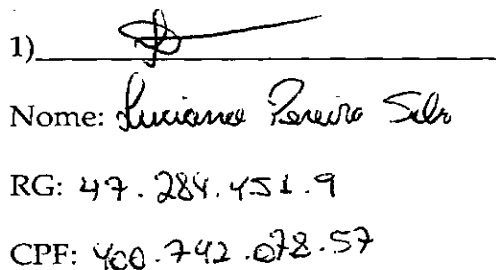 1)
Nome: Luciana Pereira Silv
RG: 47.284.451.9
CPF: 400.742.078.57